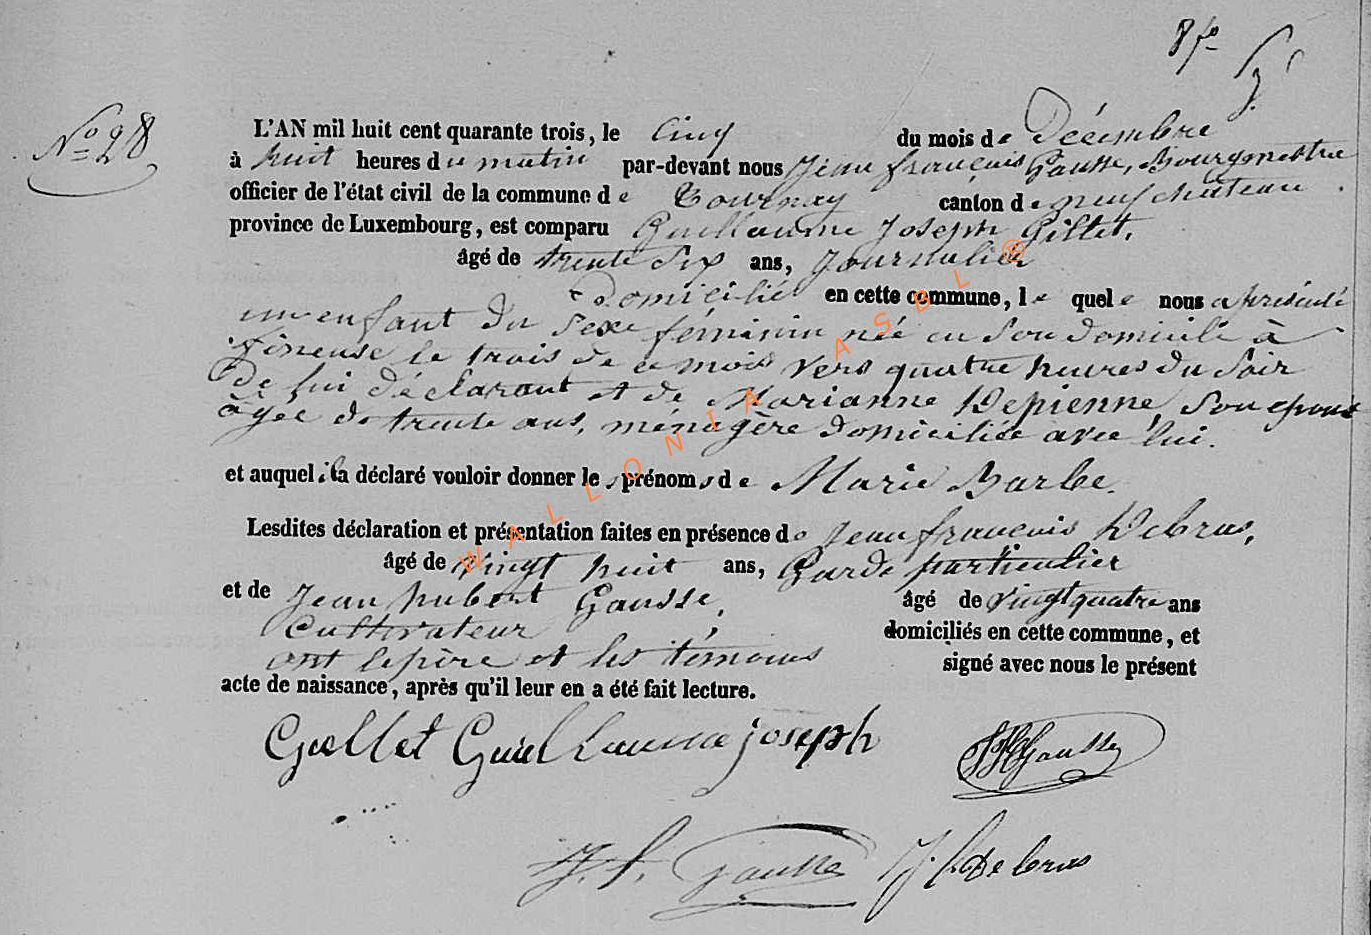 8 fo
No 28
L'AN mil huit cent quarante trois, le Cinq du mois de Décembre
à huit heures du matin par-devant nous Jean françois Gausse, Bourgmestre
officier de l'état civil de la commune de Tournay canton de neufchateau
province de Luxembourg, est comparu Guillaume Joseph Gillet,
âgé de trente Six ans, Journalier
Domicilié en cette commune, le quel nous a présenté
un enfant du Sexe féminin née en Son domicile à
le trois de ce mois vers quatre heures du Soir
De lui déclarant et de Marianne Depienne, Son epouse
agée de trente ans, ménagère domiciliée avec lui.
et auquel il a déclaré vouloir donner les prénoms de Marie Barbe.
Lesdites déclaration et présentation faites en présence de Jean françois Debras,
âgé de vingt huit ans, Garde particulier
et de Jean hubert Gausse, âgé de vingt quatre ans
Cultivateur domiciliés en cette commune, et
ont le père et les témoins signé avec nous le présent
acte de naissance, après qu'il leur en a été fait lecture.
Gellet Guillaume joseph JH Gausse
J. f. Gausse J f Debras
WALLONIA ASBL ®